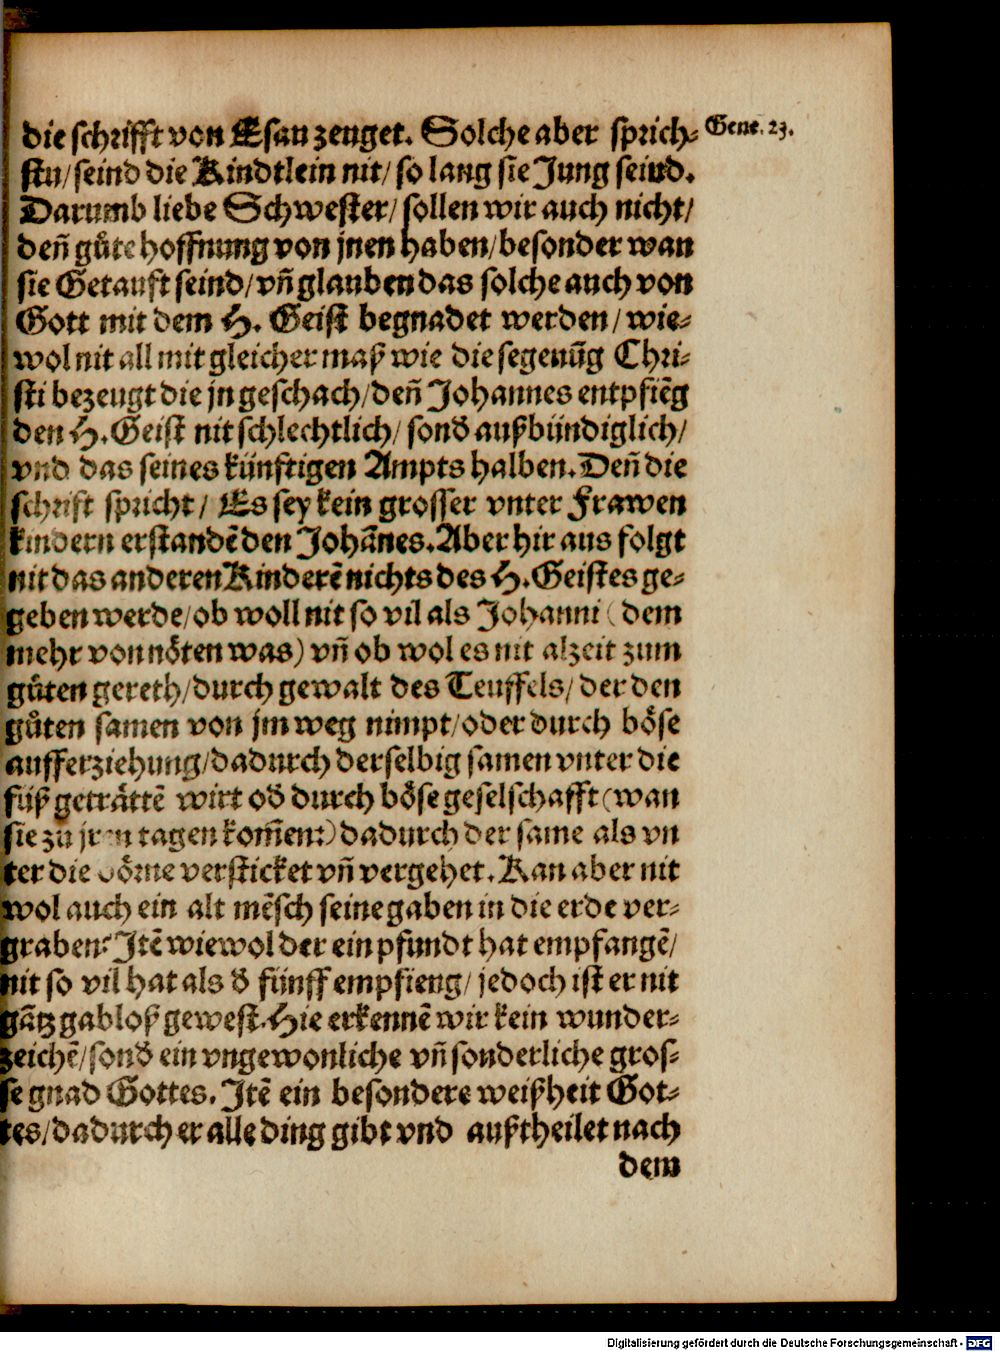 die schrifft von Esau zeuget. Solche aber sprich⸗ Gene. 23.
stu/ seind die Kindtlein nit/ so lang sie Jung seind.
Darumb liebe Schwester/ sollen wir auch nicht/
deñ gůte hoffnung von jnen haben/ besonder wan
sie Getauft seind/ vñ glauben das solche auch von
Gott mit dem H. Geist begnadet werden/ wie⸗
wol nit all mit gleicher maß wie die segenũg Chri⸗
sti bezeugt die jn geschach/ deñ Johannes entpfiẽg
den H. Geist nit schlechtlich/ sond̕ außbündiglich/
vnd das seines künftigen Ampts halben. Deñ die
schrift spricht/ Es sey kein grosser vnter Frawen
kindern erstandẽ den Johãnes. Aber hir aus folgt
nit das anderen Kinderẽ nichts des H. Geistes ge⸗
geben werde/ ob woll nit so vil als Johanni (dem
mehr von nöten was) vñ ob wol es nit alzeit zum
gůten gereth/ durch gewalt des Teuffels/ der den
gůten samen von jm weg nimpt/ oder durch böse
aufferziehung/ dadurch derselbig samen vnter die
füß geträttẽ wirt od̕ durch böse geselschafft (wan
sie zů jren tagen kom̃en:) dadurch der same als vn
ter die dörne versticket vñ vergehet. Kan aber nit
wol auch ein alt mẽsch seine gaben in die erde ver⸗
graben? Jtẽ wiewol der ein pfundt hat empfangẽ/
nit so vil hat als d̕ fünff empfieng/ jedoch ist er nit
gãtz gabloß gewest. Hie erkennẽ wir kein wunder⸗
zeichẽ/ sond̕ ein vngewonliche vñ sonderliche gros⸗
se gnad Gottes. Jtẽ ein besondere weißheit Got⸗
tes/ dadurch er alle ding gibt vnd außtheilet nach
dem
Digitalisierung gefördert durch die Deutsche Forschungsgemeinschaft - DFG